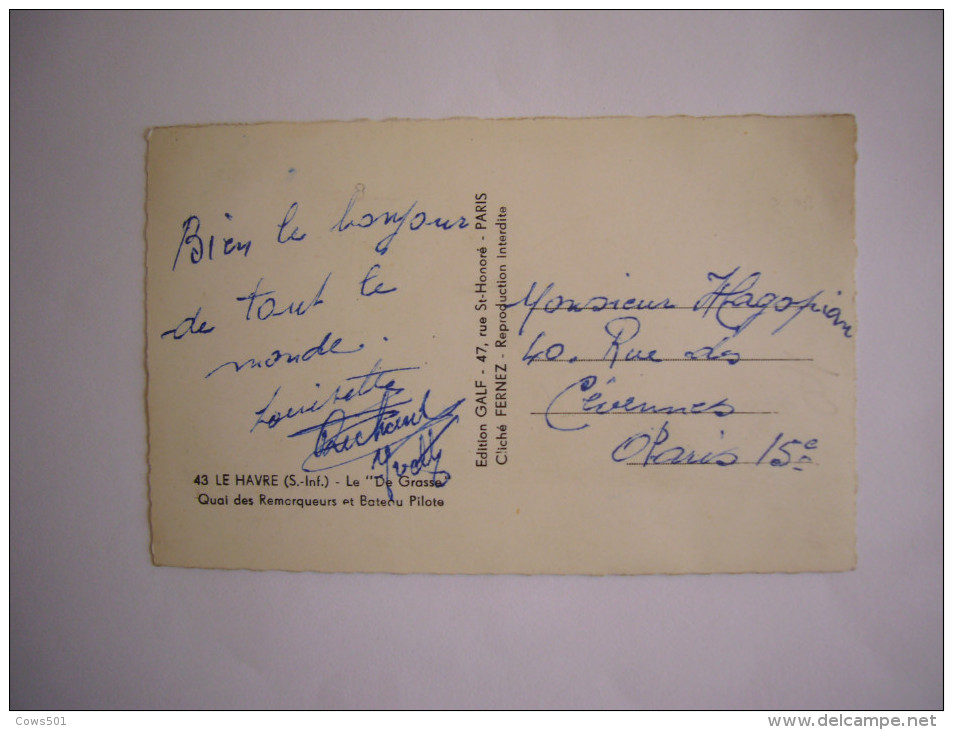 Bien le bonjour
de tout le
monde.
Louisette
43 LE HAVRE (S.-Inf.) - Le "De Grasse"
Quai des Remorqueurs et Bateau Pilote
Edition GALF - 47, rue St-Honoré - PARIS
Cliché FERNEZ - Reproduction Interdite
Monsieur Hagopian
40. Rue des
Cévennes
Paris 15e
Cows501
www.delcampe.net